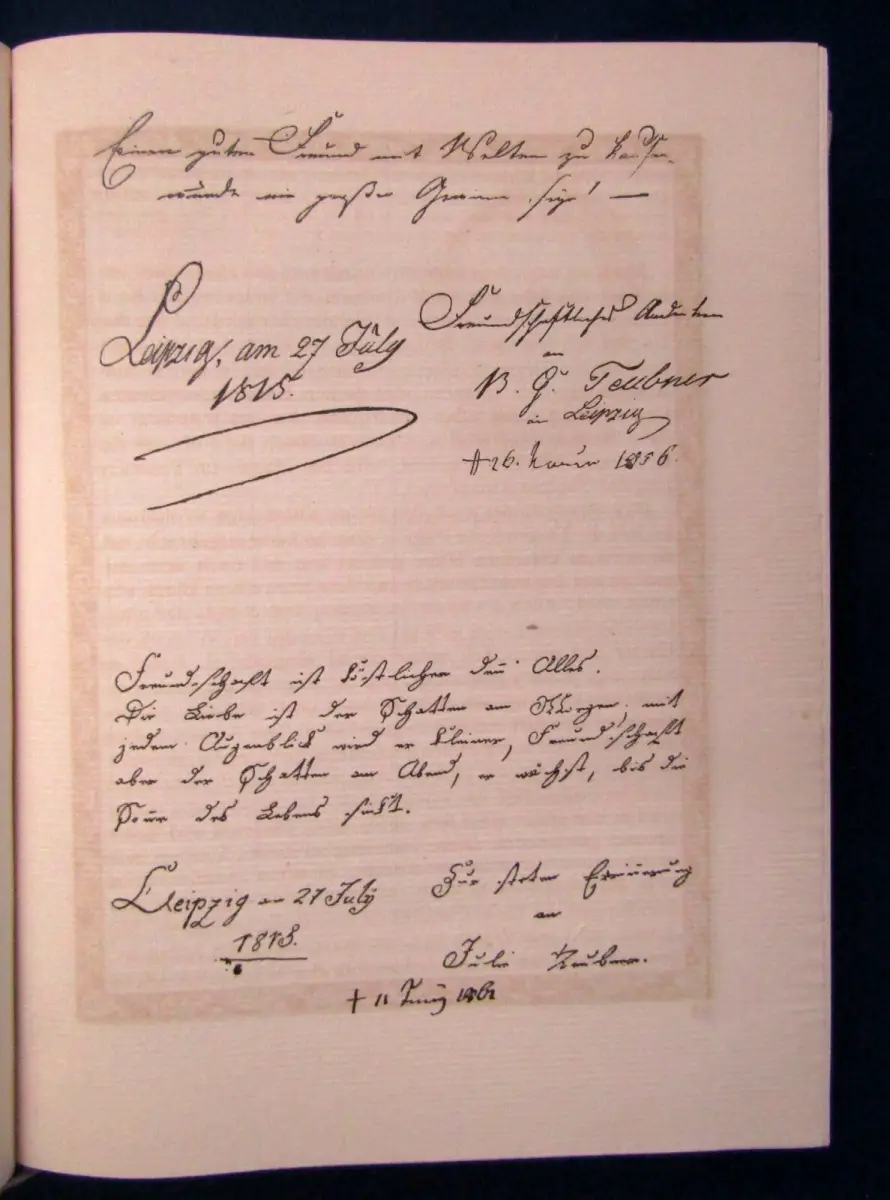 Einen guten Freund mit Welten zu kaufen,
würde ein großer Gewinn seyn! —
Leipzig, am 27 July
1815.
Freundschaftliches Andenken
an
B. G. Teubner
in Leipzig
† 26. 1856.
Freundschaft ist köstlicher den̄ Alles.
Die Liebe ist der Schatten am Morgen, mit
jedem Augenblick wird er kleiner, Freundschaft
aber der Schatten am Abend, er wächst, bis die
Son̄e des Lebens sinkt.
Leipzig am 27 July
1815.
Zur steten Erin̄erung
an
Julie Teubner.
† 11 Juny